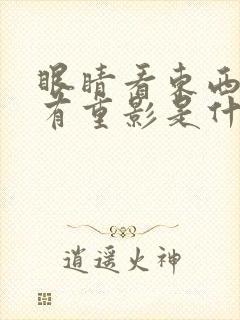 眼睛看东西
有重影是什
逍遥火神